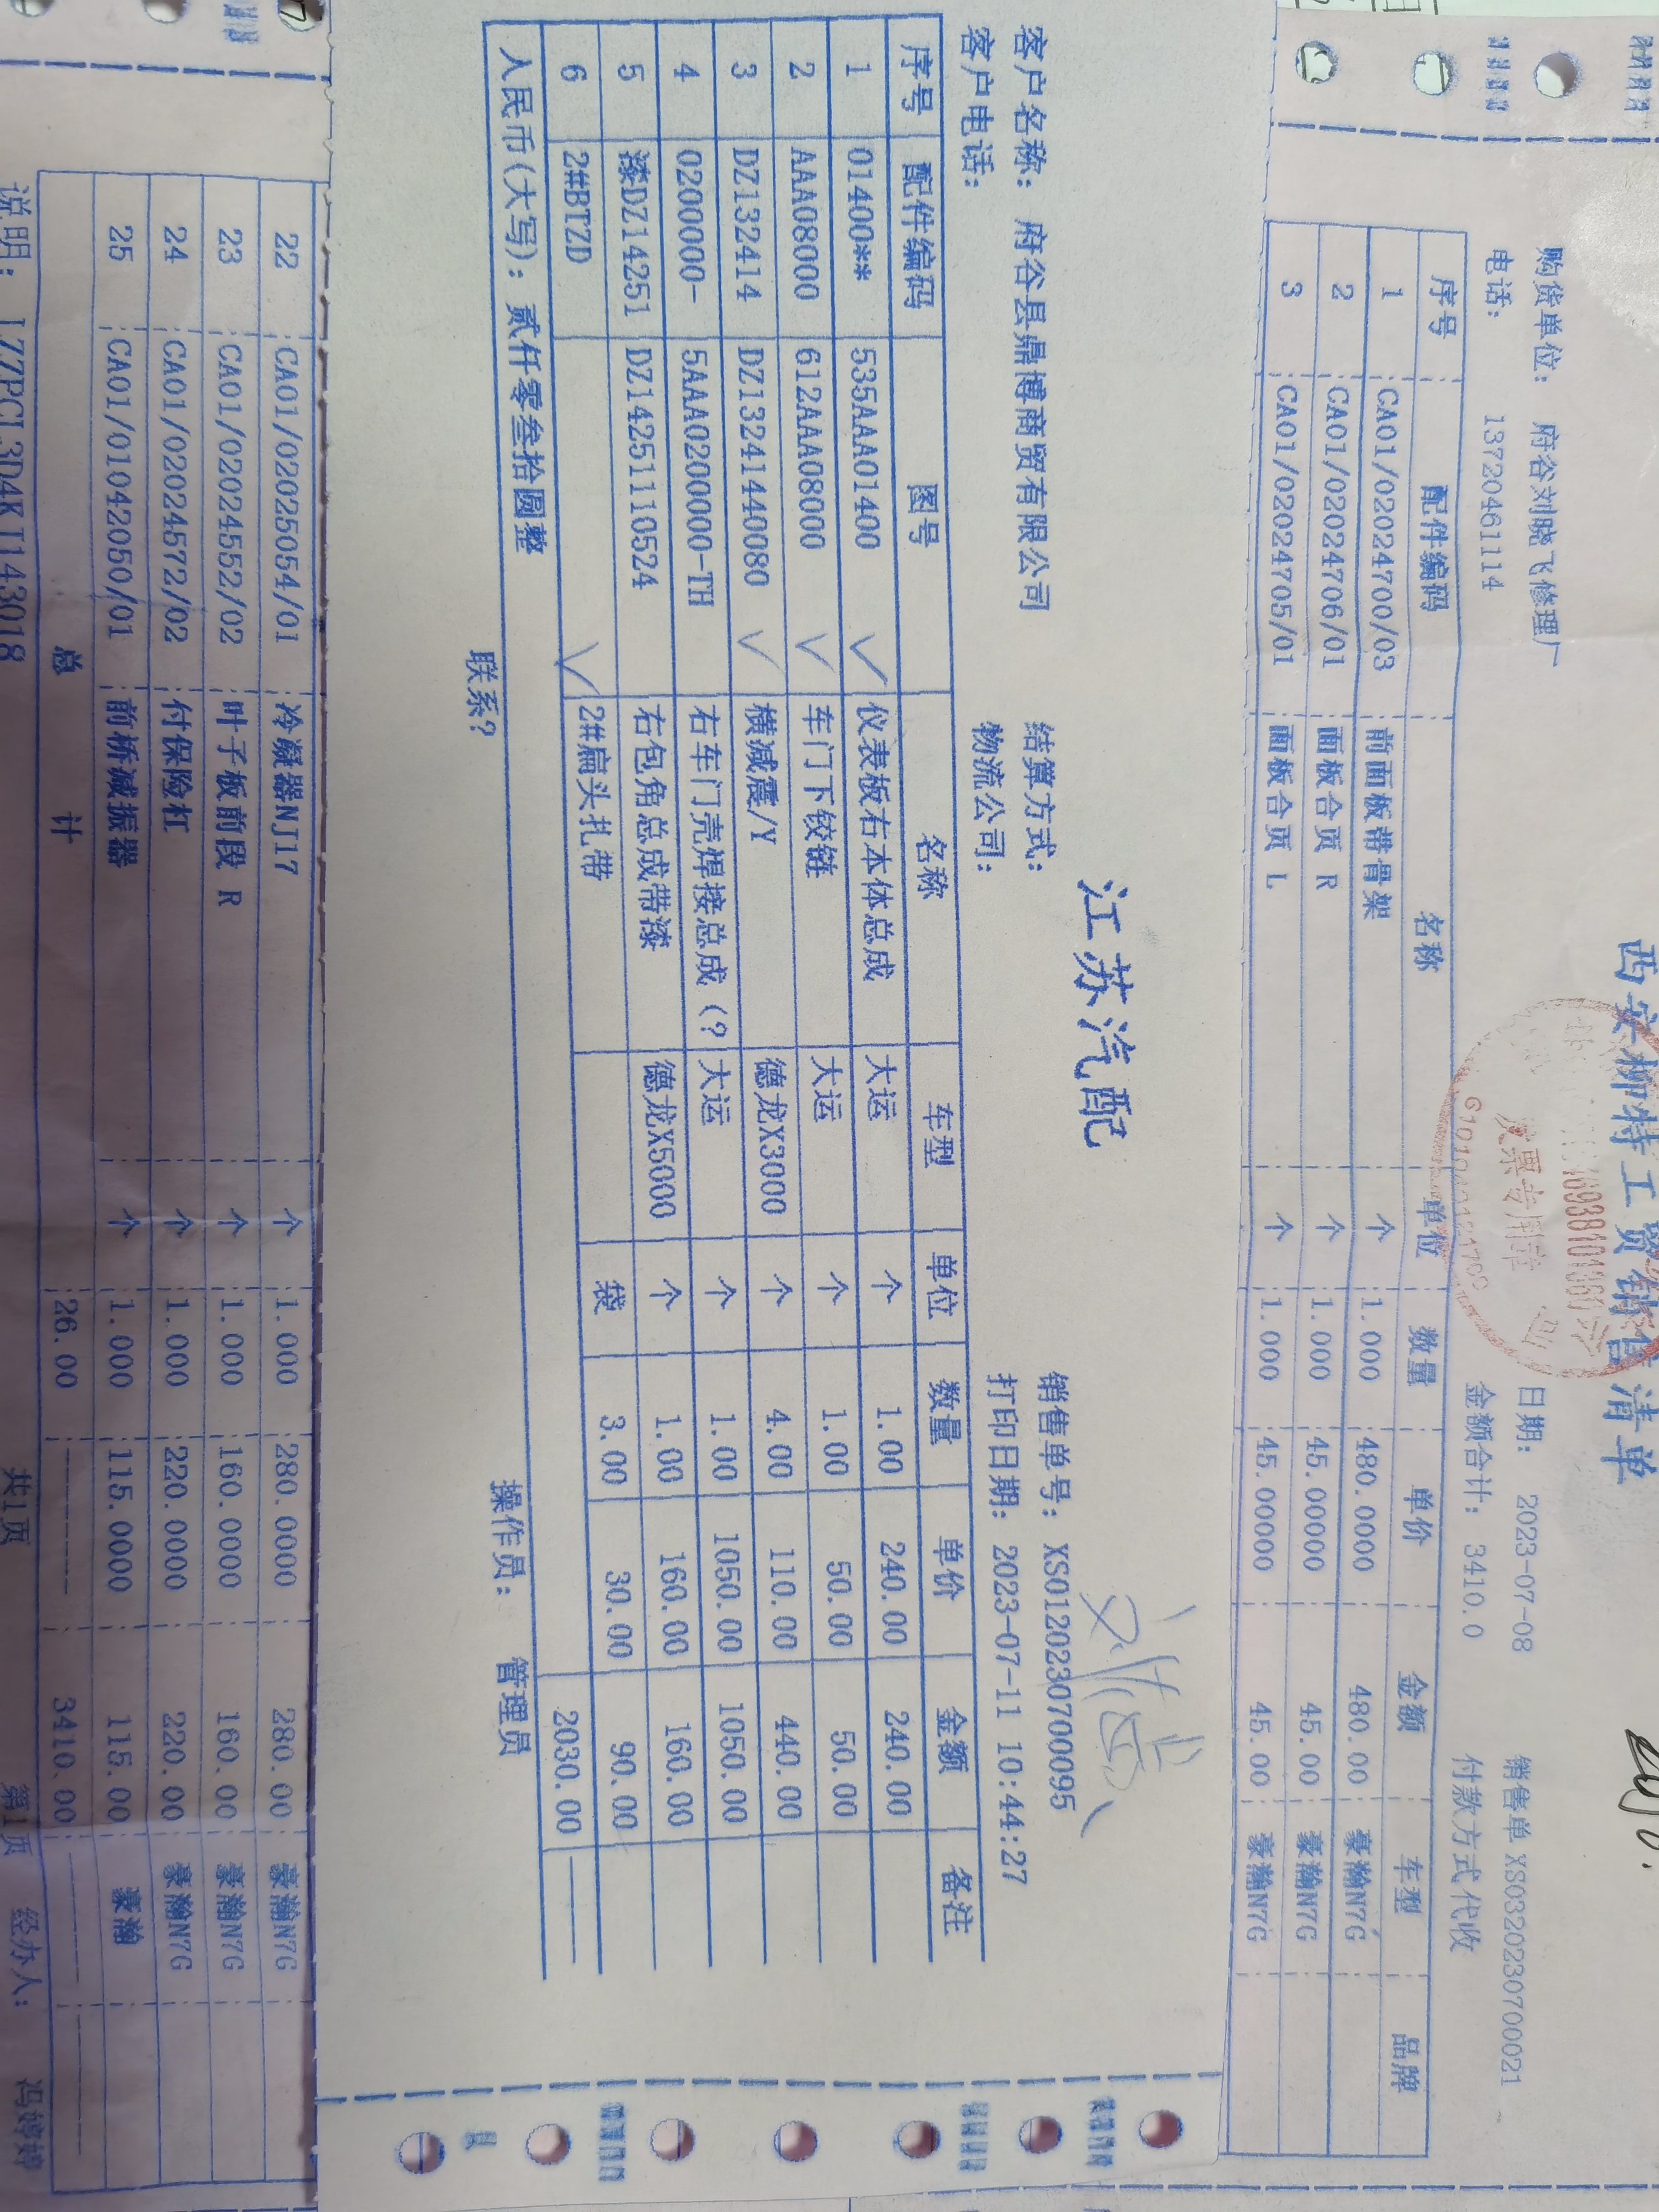 西安柳特工贸销售清单
购货单位： 府谷刘晓飞修理厂 日期： 2023-07-08 销售单 XS03202307000021
电话： 13720461114 金额合计： 3410.0 付款方式代收
序号 配件编码 名称 单位 数量 单价 金额 车型 品牌
1 CA01/02024700/03 前面板带骨架 个 1.000 480.0000 480.00 豪瀚N7G
2 CA01/02024706/01 面板合页 R 个 1.000 45.00000 45.00 豪瀚N7G
3 CA01/02024705/01 面板合页 L 个 1.000 45.00000 45.00 豪瀚N7G
发票专用章
江苏汽配
客户名称： 府谷县鼎博商贸有限公司 结算方式： 销售单号： XS01202307000095
客户电话： 物流公司： 打印日期： 2023-07-11 10:44:27
序号 配件编码 图号 名称 车型 单位 数量 单价 金额 备注
1 01400** 535AAA01400 仪表板右本体总成 大运 个 1.00 240.00 240.00
2 AAA08000 612AAA08000 车门下铰链 大运 个 1.00 50.00 50.00
3 DZ132414 DZ13241440080 横减震/Y 德龙X3000 个 4.00 110.00 440.00
4 0200000- 5AAA0200000-TH 右车门壳焊接总成(? 大运 个 1.00 1050.00 1050.00
5 漆DZ14251 DZ14251110524 右包角总成带漆 德龙X5000 个 1.00 160.00 160.00
6 2#BTZD 2#扁头扎带 袋 3.00 30.00 90.00
人民币(大写)：贰仟零叁拾圆整 2030.00 ————
联系? 操作员： 管理员
22 CA01/02025054/01 冷凝器NJ17 个 1.000 280.0000 280.00 豪瀚N7G
23 CA01/02024552/02 叶子板前段 R 个 1.000 160.0000 160.00 豪瀚N7G
24 CA01/02024572/02 付保险杠 个 1.000 220.0000 220.00 豪瀚N7G
25 CA01/01042050/01 前桥减振器 个 1.000 115.0000 115.00 豪瀚
总 计 26.00 -------- 3410.00 --------
说明： LZZPCL3D4KJ143018 共1页 第1页 经办人： 冯婷婷